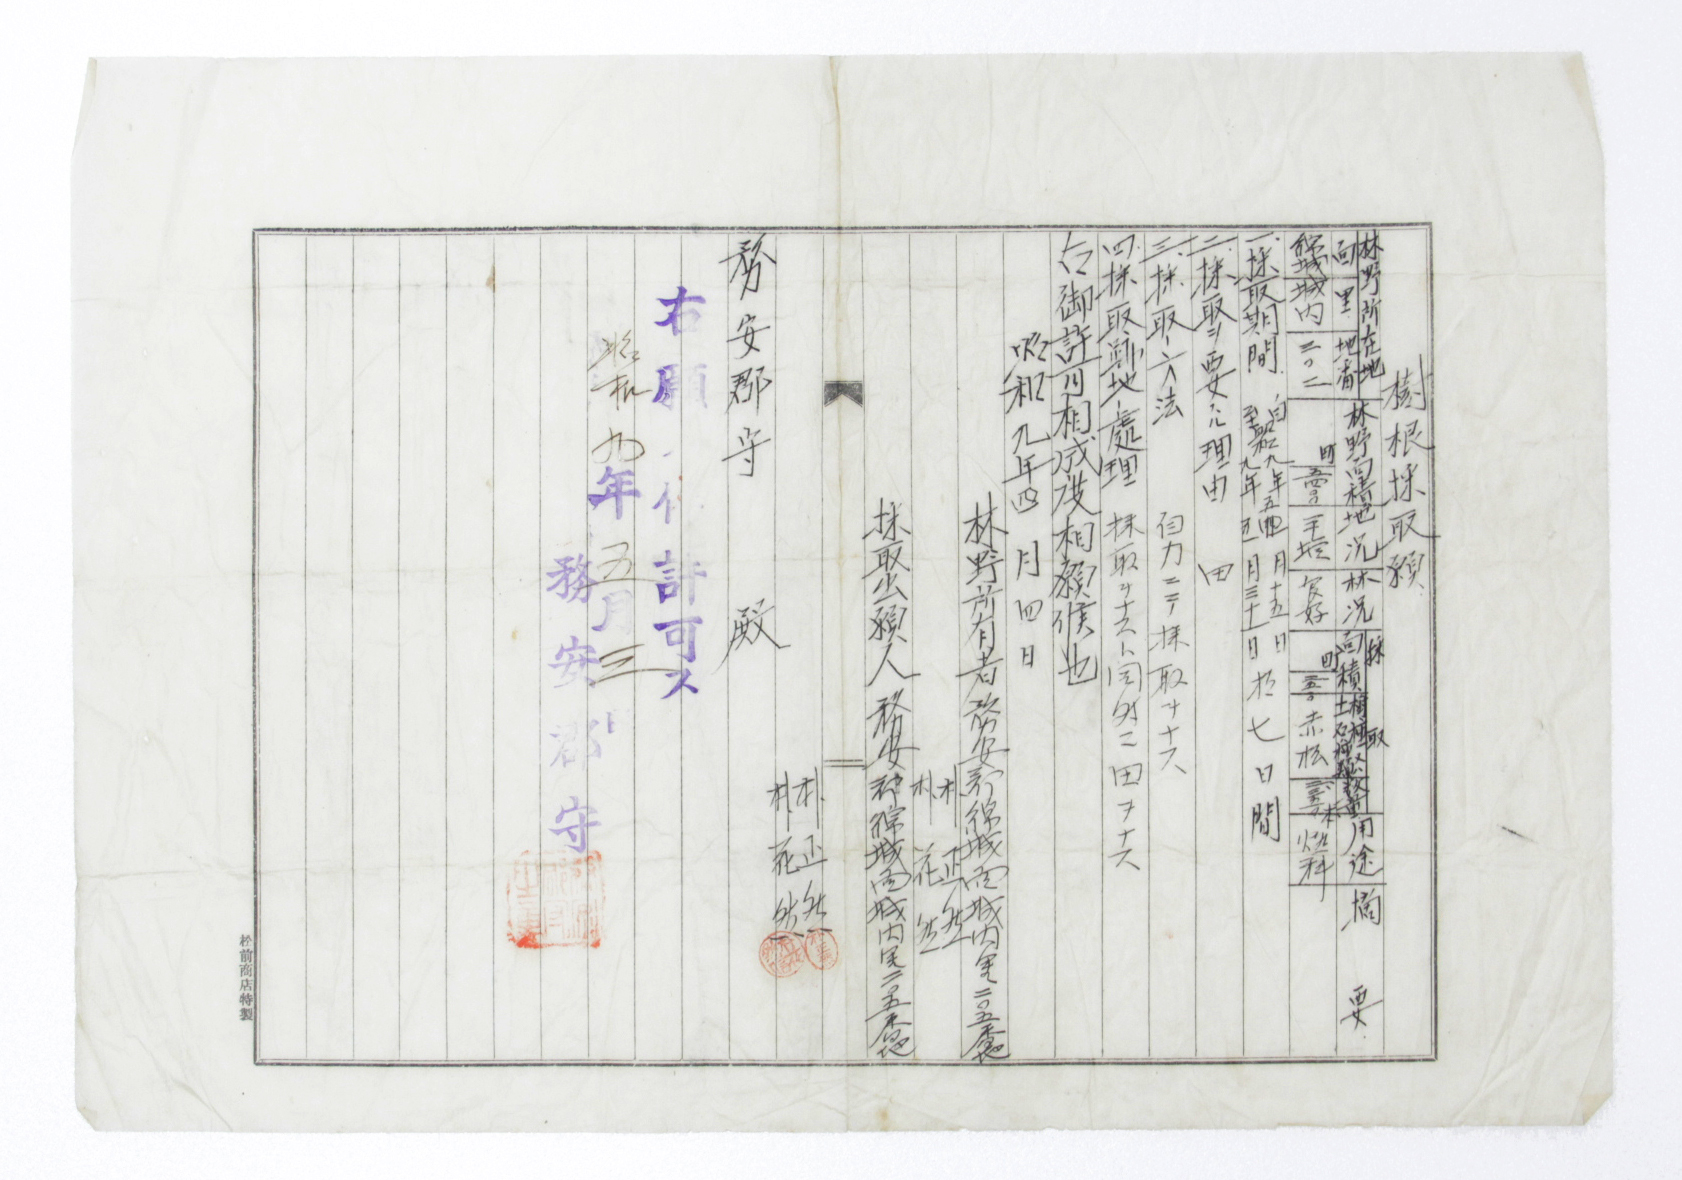 樹根採取願
林野所在地 林野面積 地況 林況 採取 用途 摘要
面 里 地番 面積 樹種 数量
綿城 城内 二〇二 町 良好 町 赤松 燃料
一、採取期間 自昭和九年五月十五日 至昭和九年五月三十一日 拾七日間
二、採取ヲ要スル理由 田
三、採取ノ方法 自力ニテ採取ヲナス
四、採取跡地ノ處理 採取ヲナスト同時ニ田ヲナス
右御許可相成度相願候也
昭和九年四月四日
林野所有者 務安郡綿城面城内里二〇五番地
朴正然
朴花然
採取出願人 務安郡綿城面城内里二〇五番地
朴正然
朴花然
務安郡守 殿
右願ノ件許可ス
昭和九年五月三日
務安郡守
松前商店特製